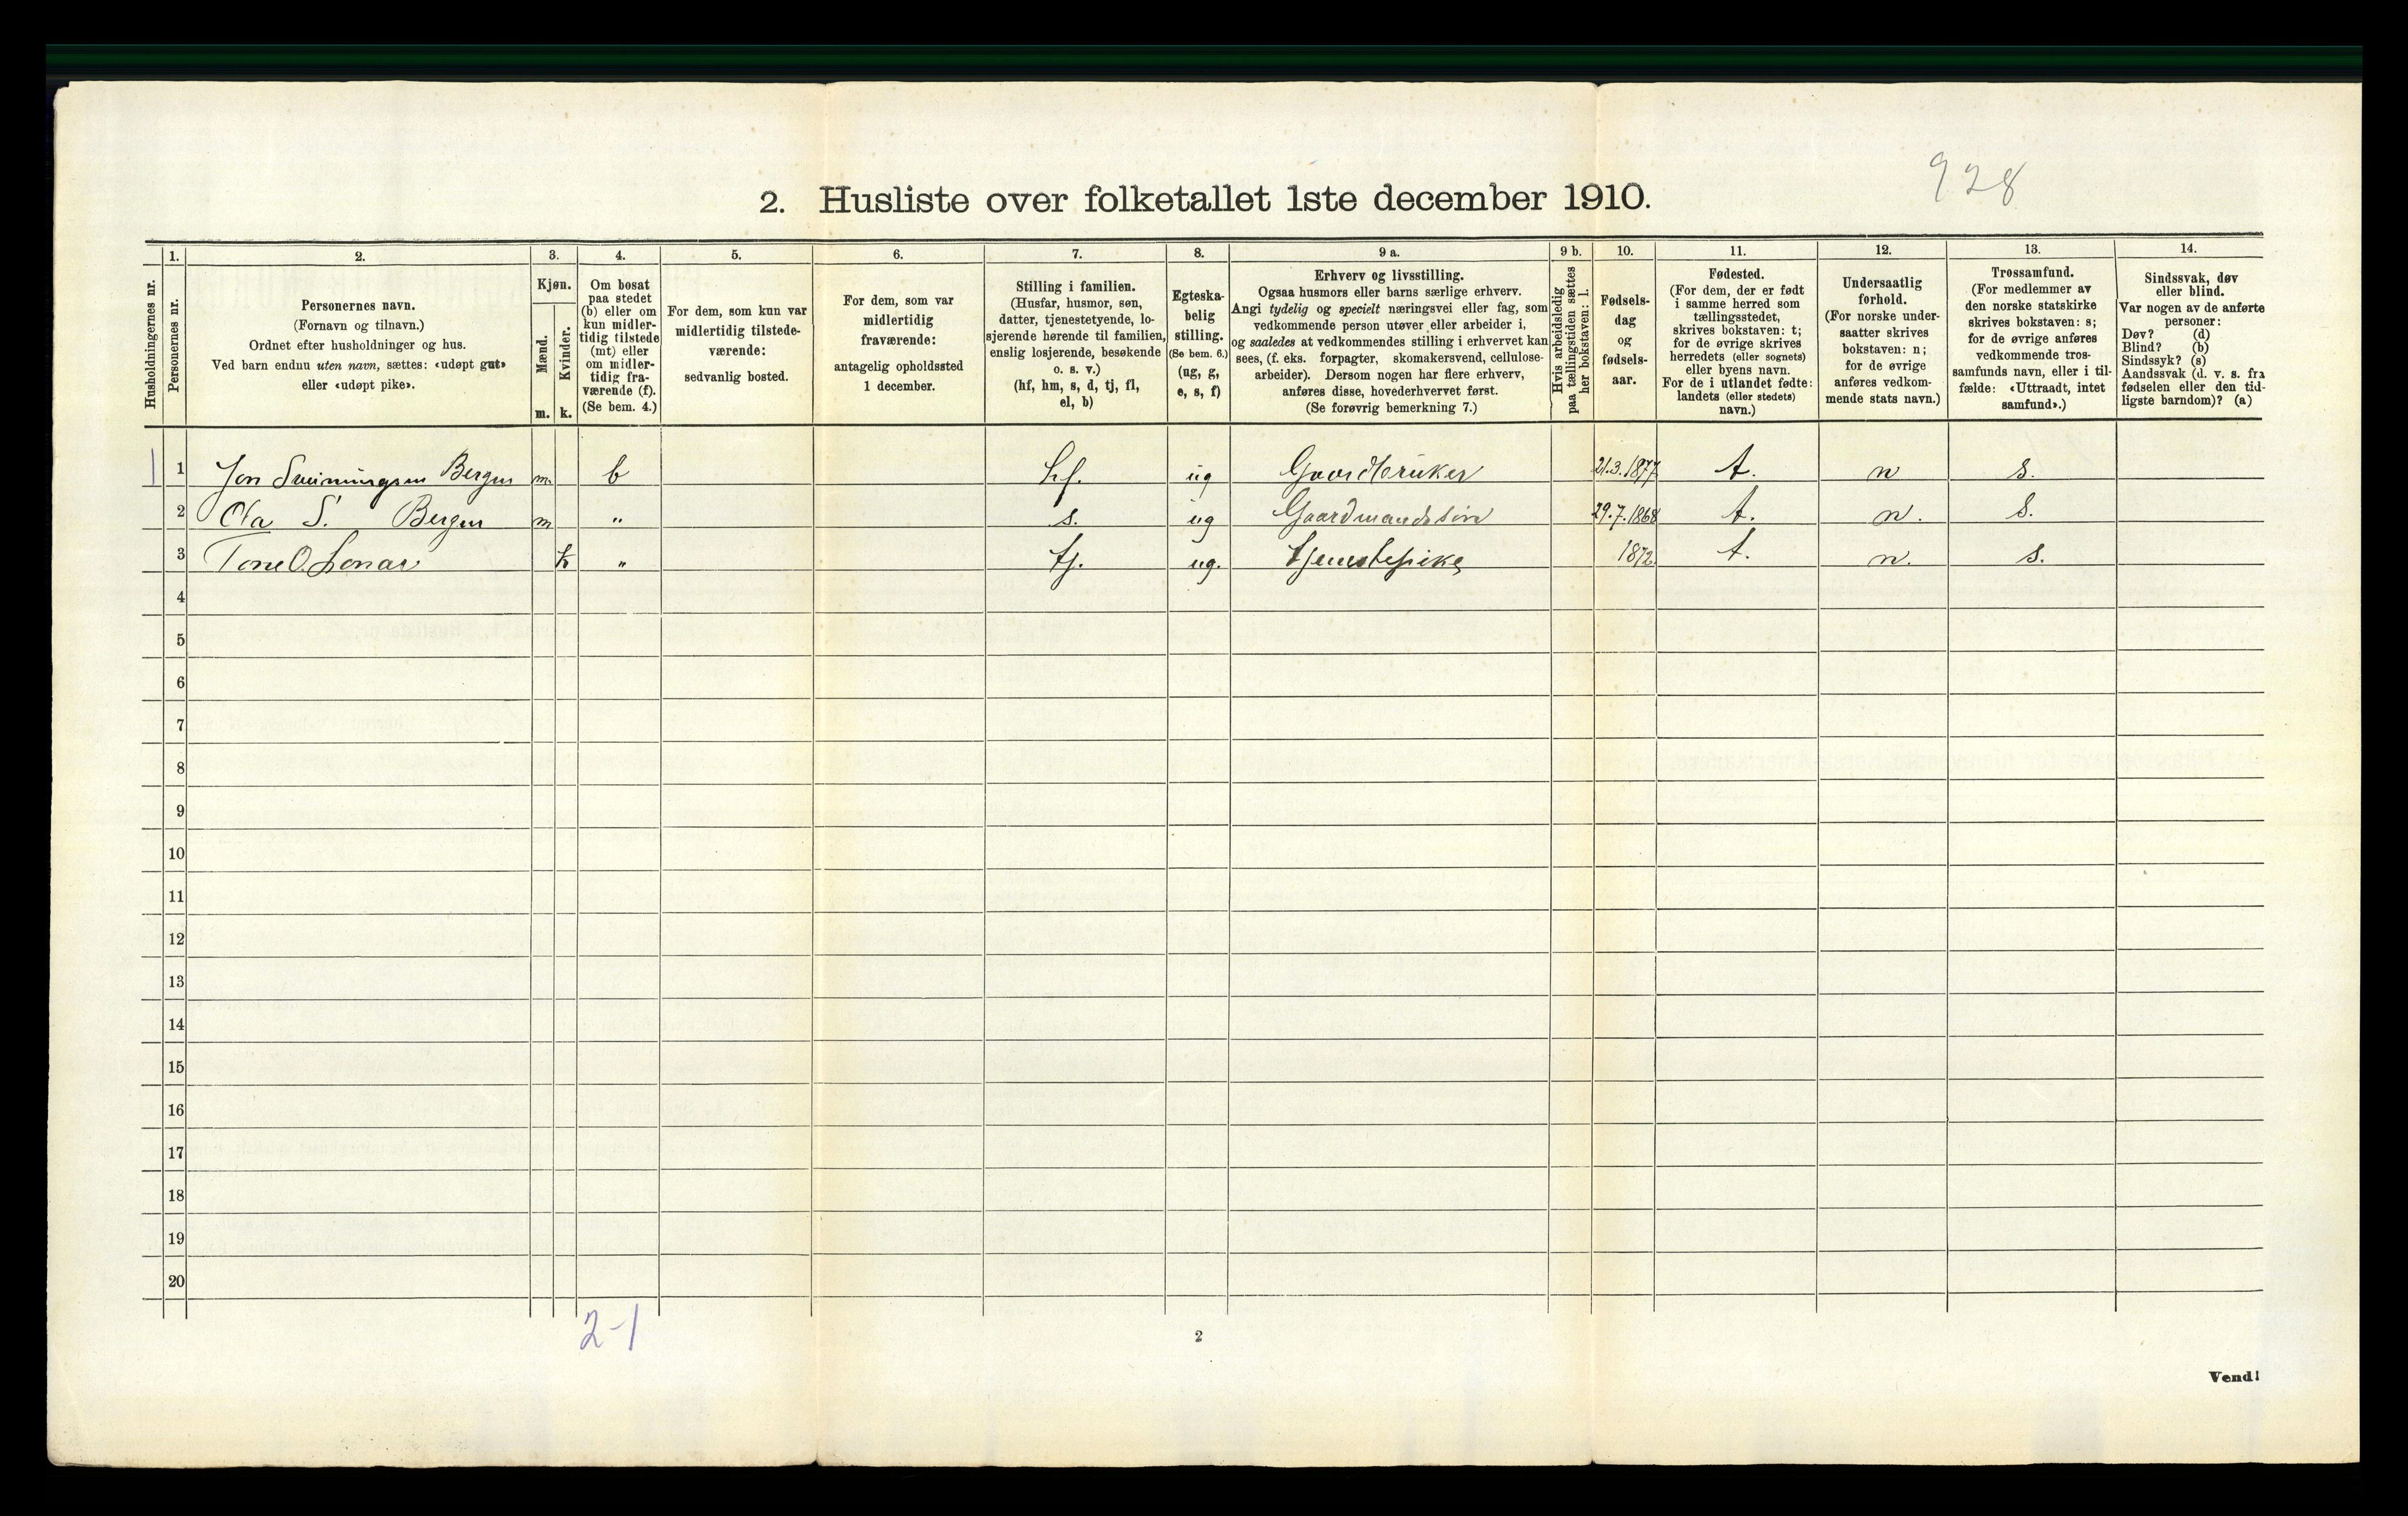 928
2. Husliste over folketallet 1ste december 1910.
Husholdningernes nr.
1.
Personernes nr.
2.
Personernes navn.
(Fornavn og tilnavn.)
Ordnet efter husholdninger og hus.
Ved barn endnu uten navn, sættes: «udøpt gut»
eller «udøpt pike».
3.
Kjøn.
Mænd.
Kvinder.
m. k.
4.
Om bosat
paa stedet
(b) eller om
kun midler-
tidig tilstede
(mt) eller
om midler-
tidig fra-
værende (f).
(Se bem. 4.)
5.
For dem, som kun var
midlertidig tilstede-
værende:
sedvanlig bosted.
6.
For dem, som var
midlertidig
fraværende:
antagelig opholdssted
1 december.
7.
Stilling i familien.
(Husfar, husmor, søn,
datter, tjenestetyende, lo-
sjerende hørende til familien,
enslig losjerende, besøkende
o. s. v.)
(hf, hm, s, d, tj, fl,
el, b)
8.
Egteska-
belig
stilling.
(Se bem. 6.)
(ug, g,
e, s, f)
9 a.
Erhverv og livsstilling.
Ogsaa husmors eller barns særlige erhverv.
Angi tydelig og specielt næringsvei eller fag, som
vedkommende person utøver eller arbeider i,
og saaledes at vedkommendes stilling i erhvervet kan
sees, (f. eks. forpagter, skomakersvend, cellulose-
arbeider). Dersom nogen har flere erhverv,
anføres disse, hovederhvervet først.
(Se forøvrig bemerkning 7.)
9 b.
Hvis arbeidsledig
paa tællingstiden sættes
her bokstaven: l.
10.
Fødsels-
dag
og
fødsels-
aar.
11.
Fødested.
(For dem, der er født
i samme herred som
tællingsstedet,
skrives bokstaven: t;
for de øvrige skrives
herredets (eller sognets)
eller byens navn.
For de i utlandet fødte:
landets (eller stedets)
navn.)
12.
Undersaatlig
forhold.
(For norske under-
saatter skrives
bokstaven: n;
for de øvrige
anføres vedkom-
mende stats navn.)
13.
Trossamfund.
(For medlemmer av
den norske statskirke
skrives bokstaven: s;
for de øvrige anføres
vedkommende tros-
samfunds navn, eller i til-
fælde: «Uttraadt, intet
samfund».)
14.
Sindssvak, døv
eller blind.
Var nogen av de anførte
personer:
Døv? (d)
Blind? (b)
Sindssyk? (s)
Aandssvak (d. v. s. fra
fødselen eller den tid-
ligste barndom)? (a)
1 1 Jon Sveinungsen Bergen m. b hf. ug Gaardbruker 21.3.1877 t. n s.
2 Ola S. Bergen m " s. ug Gaardmandssøn 29.7.1868 t. n. s.
3 Tone O. Lonar k " tj. ug. tjenestepike 1872. t. n. s.
4
5
6
7
8
9
10
11
12
13
14
15
16
17
18
19
20
2-1
2
Vend!